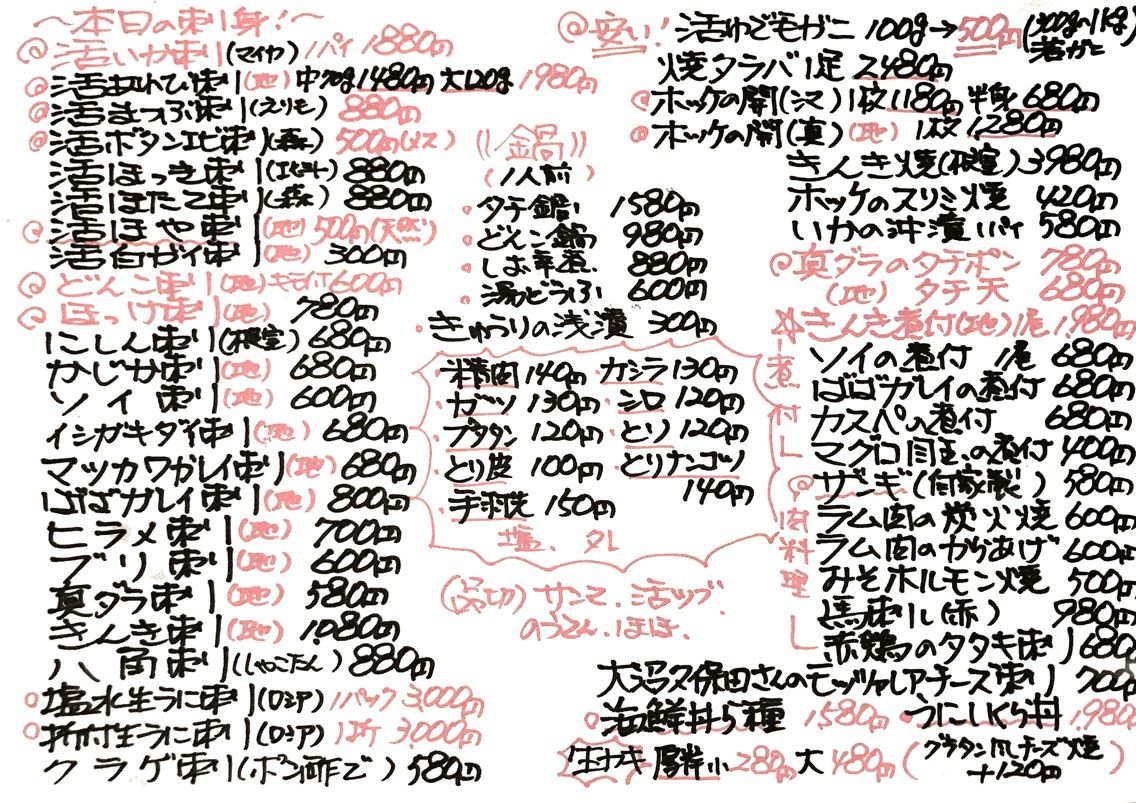 ～本日の刺身！～
活いか刺(マイヤ) 1パイ 1880円
活あわび刺(地) 中70g 1480円 大120g 1980円
活まつぶ刺(えりも) 880円
活ボタンエビ刺(森) 500円(メス)
活ほっき刺 880円
活ほたて刺(森) 880円
活ほや刺(地) 500円(天然)
活白ガイ刺(地) 300円
どんこ刺(地)キモ付600円
ほっけ刺(地) 780円
にしん刺(根室) 680円
かじか刺(地) 680円
ソイ刺(地) 600円
イシガキダイ刺(地) 680円
マツカワガレイ刺(地) 680円
ばばガレイ刺(地) 800円
ヒラメ刺(地) 700円
ブリ刺(地) 600円
真ダラ刺(地) 580円
きんき刺(地) 1080円
八角刺(しゃこたん) 880円
塩水生うに刺(ロシア) 1パック 3,000円
折付生うに刺(ロシア) 1折 3,000円
クラゲ刺(ポン酢で) 580円
鍋
(1人前)
タチ鍋 1580円
どんこ鍋 980円
880円
湯どうふ 600円
きゅうりの浅漬 300円
精肉 140円 カシラ 130円
ガツ 130円 シロ 120円
ブタタン 120円 とり 120円
とり皮 100円 とりナンコツ
140円
手羽先 150円
塩、タレ
(品切) サンマ、活ツブ、
のうてん、ほほ、
安い！活ゆで毛ガニ 100g→500円(300g～1kg
若ガニ
焼タラバ1足 2480円
ホッケの開(シマ) 1枚1180円 半身680円
ホッケの開(真)(地) 1枚 1280円
きんき焼(根室) 3980円
ホッケのスリミ焼 420円
いかの沖漬1パイ 580円
真ダラのタチポン 780円
(地) タチ天 680円
きんき煮付(地)1尾 1,980円
ソイの煮付 1尾 680円
ばばガレイの煮付 680円
カスペの煮付 680円
マグロ目玉の煮付 400円
煮付し肉料理し
ザンギ(自家製) 580円
ラム肉の炭火焼 600円
ラム肉のからあげ 600円
みそホルモン焼 500円
馬刺し(赤) 980円
赤鶏のタタキ刺 680
大沼久保田さんのモッツァレラチーズ刺 700円
海鮮丼5種 1580円 うにいくら丼 1,980円
生カキ 厚岸 小280円 大480円 (グラタン風チーズ焼
+120円)